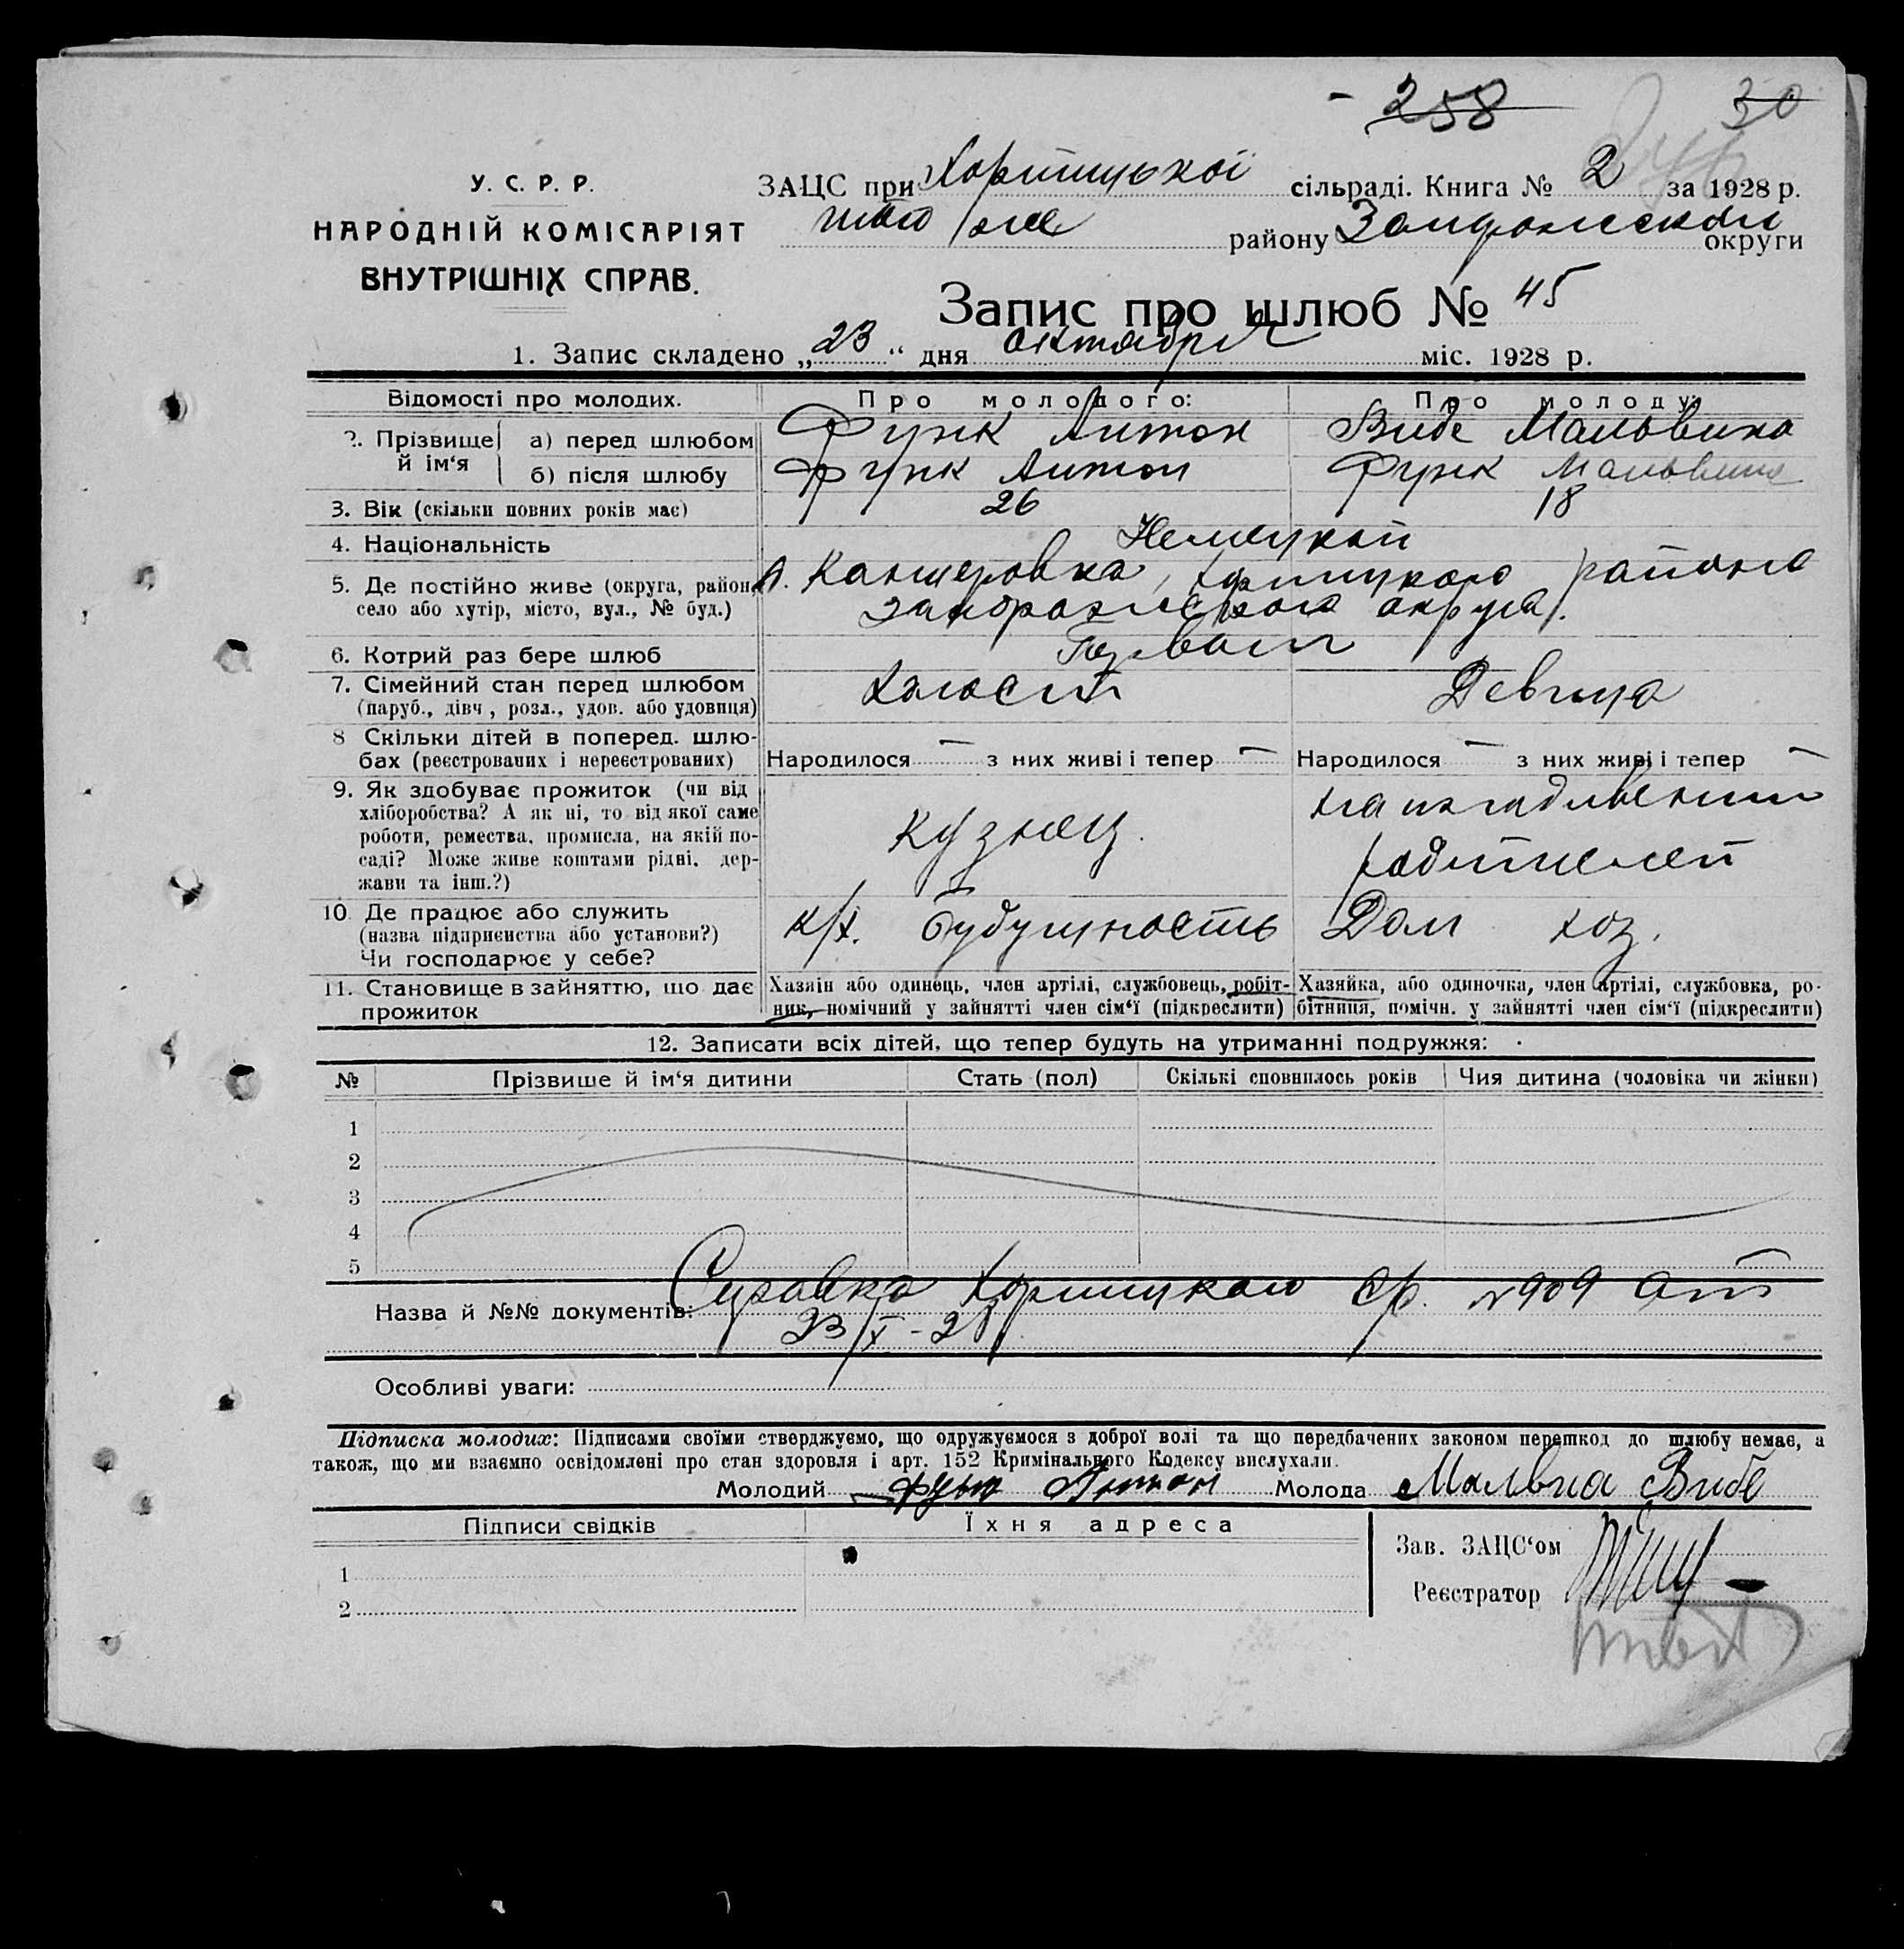 258 30
У. С. Р. Р.
НАРОДНІЙ КОМІСАРІЯТ
ВНУТРІШНІХ СПРАВ.
ЗАЦС при Хортицькоі сільраді. Книга № 2 за 1928 р.
того же району Запорожской округи
Запис про шлюб № 45
1. Запис складено „23“ дня октября міс. 1928 р.
Відомості про молодих. Про молодого: Про молоду:
2. Прізвище й ім‘я
а) перед шлюбом Функ Антон Вибе Мальвина
б) після шлюбу Функ Антон Функ Мальвина
3. Вік (скільки повних років має) 26 18
4. Національність Немецкой
5. Де постійно живе (округа, район, село або хутір, місто, вул., № буд.)
Канцеровка, Хортицкого района
Запорожского округа.
6. Котрий раз бере шлюб Первый
7. Сімейний стан перед шлюбом Холост Девица
(паруб., дівч., розл., удов. або удовиця)
8 Скільки дітей в поперед. шлю-
бах (реєстрованих і нереєстрованих) Народилося — з них живі і тепер — Народилося — з них живі і тепер —
9. Як здобуває прожиток (чи від
хліборобства? А як ні, то від якої саме
роботи, ремества, промисла, на якій по-
саді? Може живе коштами рідні, дер-
жави та інш.?)
кузнец. на иждивении
родителей
10 Де працює або служить
(назва підприємства або установи?)
Чи господарює у себе?
к/х. Будущность Дом хоз.
11. Становище в зайняттю, що дає
прожиток
Хазяін або одинець, член артілі, службовець, робіт-
ник, помічний у зайнятті член сім‘ї (підкреслити)
Хазяйка, або одиночка, член артілі, службовка, ро-
бітниця, помічн. у зайнятті член сім‘ї (підкреслити)
12. Записати всіх дітей, що тепер будуть на утриманні подружжя:
№ Прізвише й ім‘я дитини Стать (пол) Скількі сповнилось років Чия дитина (чоловіка чи жінки)
1
2
3
4
5
Назва й №№ документів: Справка Хортицкого с/р. №909 от
23/X-28
Особливі уваги:
Підписка молодих: Підписами своїми стверджуємо, що одружуємося з доброї волі та що передбачених законом перешкод до шлюбу немає, а
також, що ми взаємно освідомлені про стан здоровля і арт. 152 Кримінального Кодексу вислухали.
Молодий Функ Антон Молода Малвиа Вибе
Підписи свідків Їхня адреса
Зав. ЗАЦС‘ом
1
Реєстратор
2